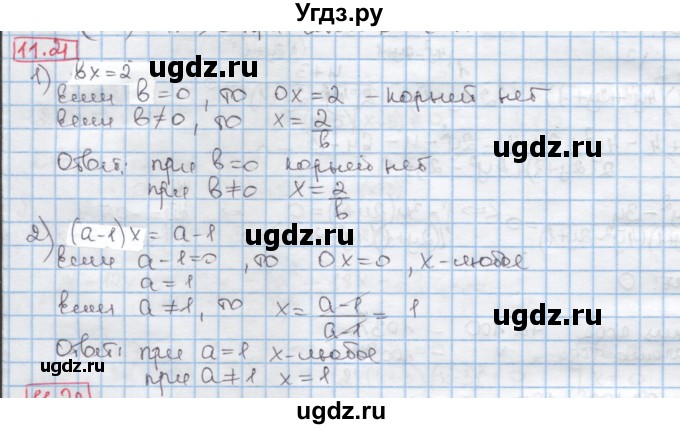 Угдз.ру
11.21
1) bx=2
если b=0, то 0x=2 - корней нет
если b≠0, то x=2/b
Ответ: при b=0 корней нет
при b≠0 x=2/b
2) (a-1)x=a-1
если a-1=0, то 0x=0, x-любое
a=1
если a≠1, то x=(a-1)/(a-1)=1
Ответ: при a=1 x-любое
при a≠1 x=1
ugdz.ru
ugdz.ru
ugdz.ru
ugdz.ru
ugdz.ru
ugdz.ru
ugdz.ru
ugdz.ru
ugdz.ru